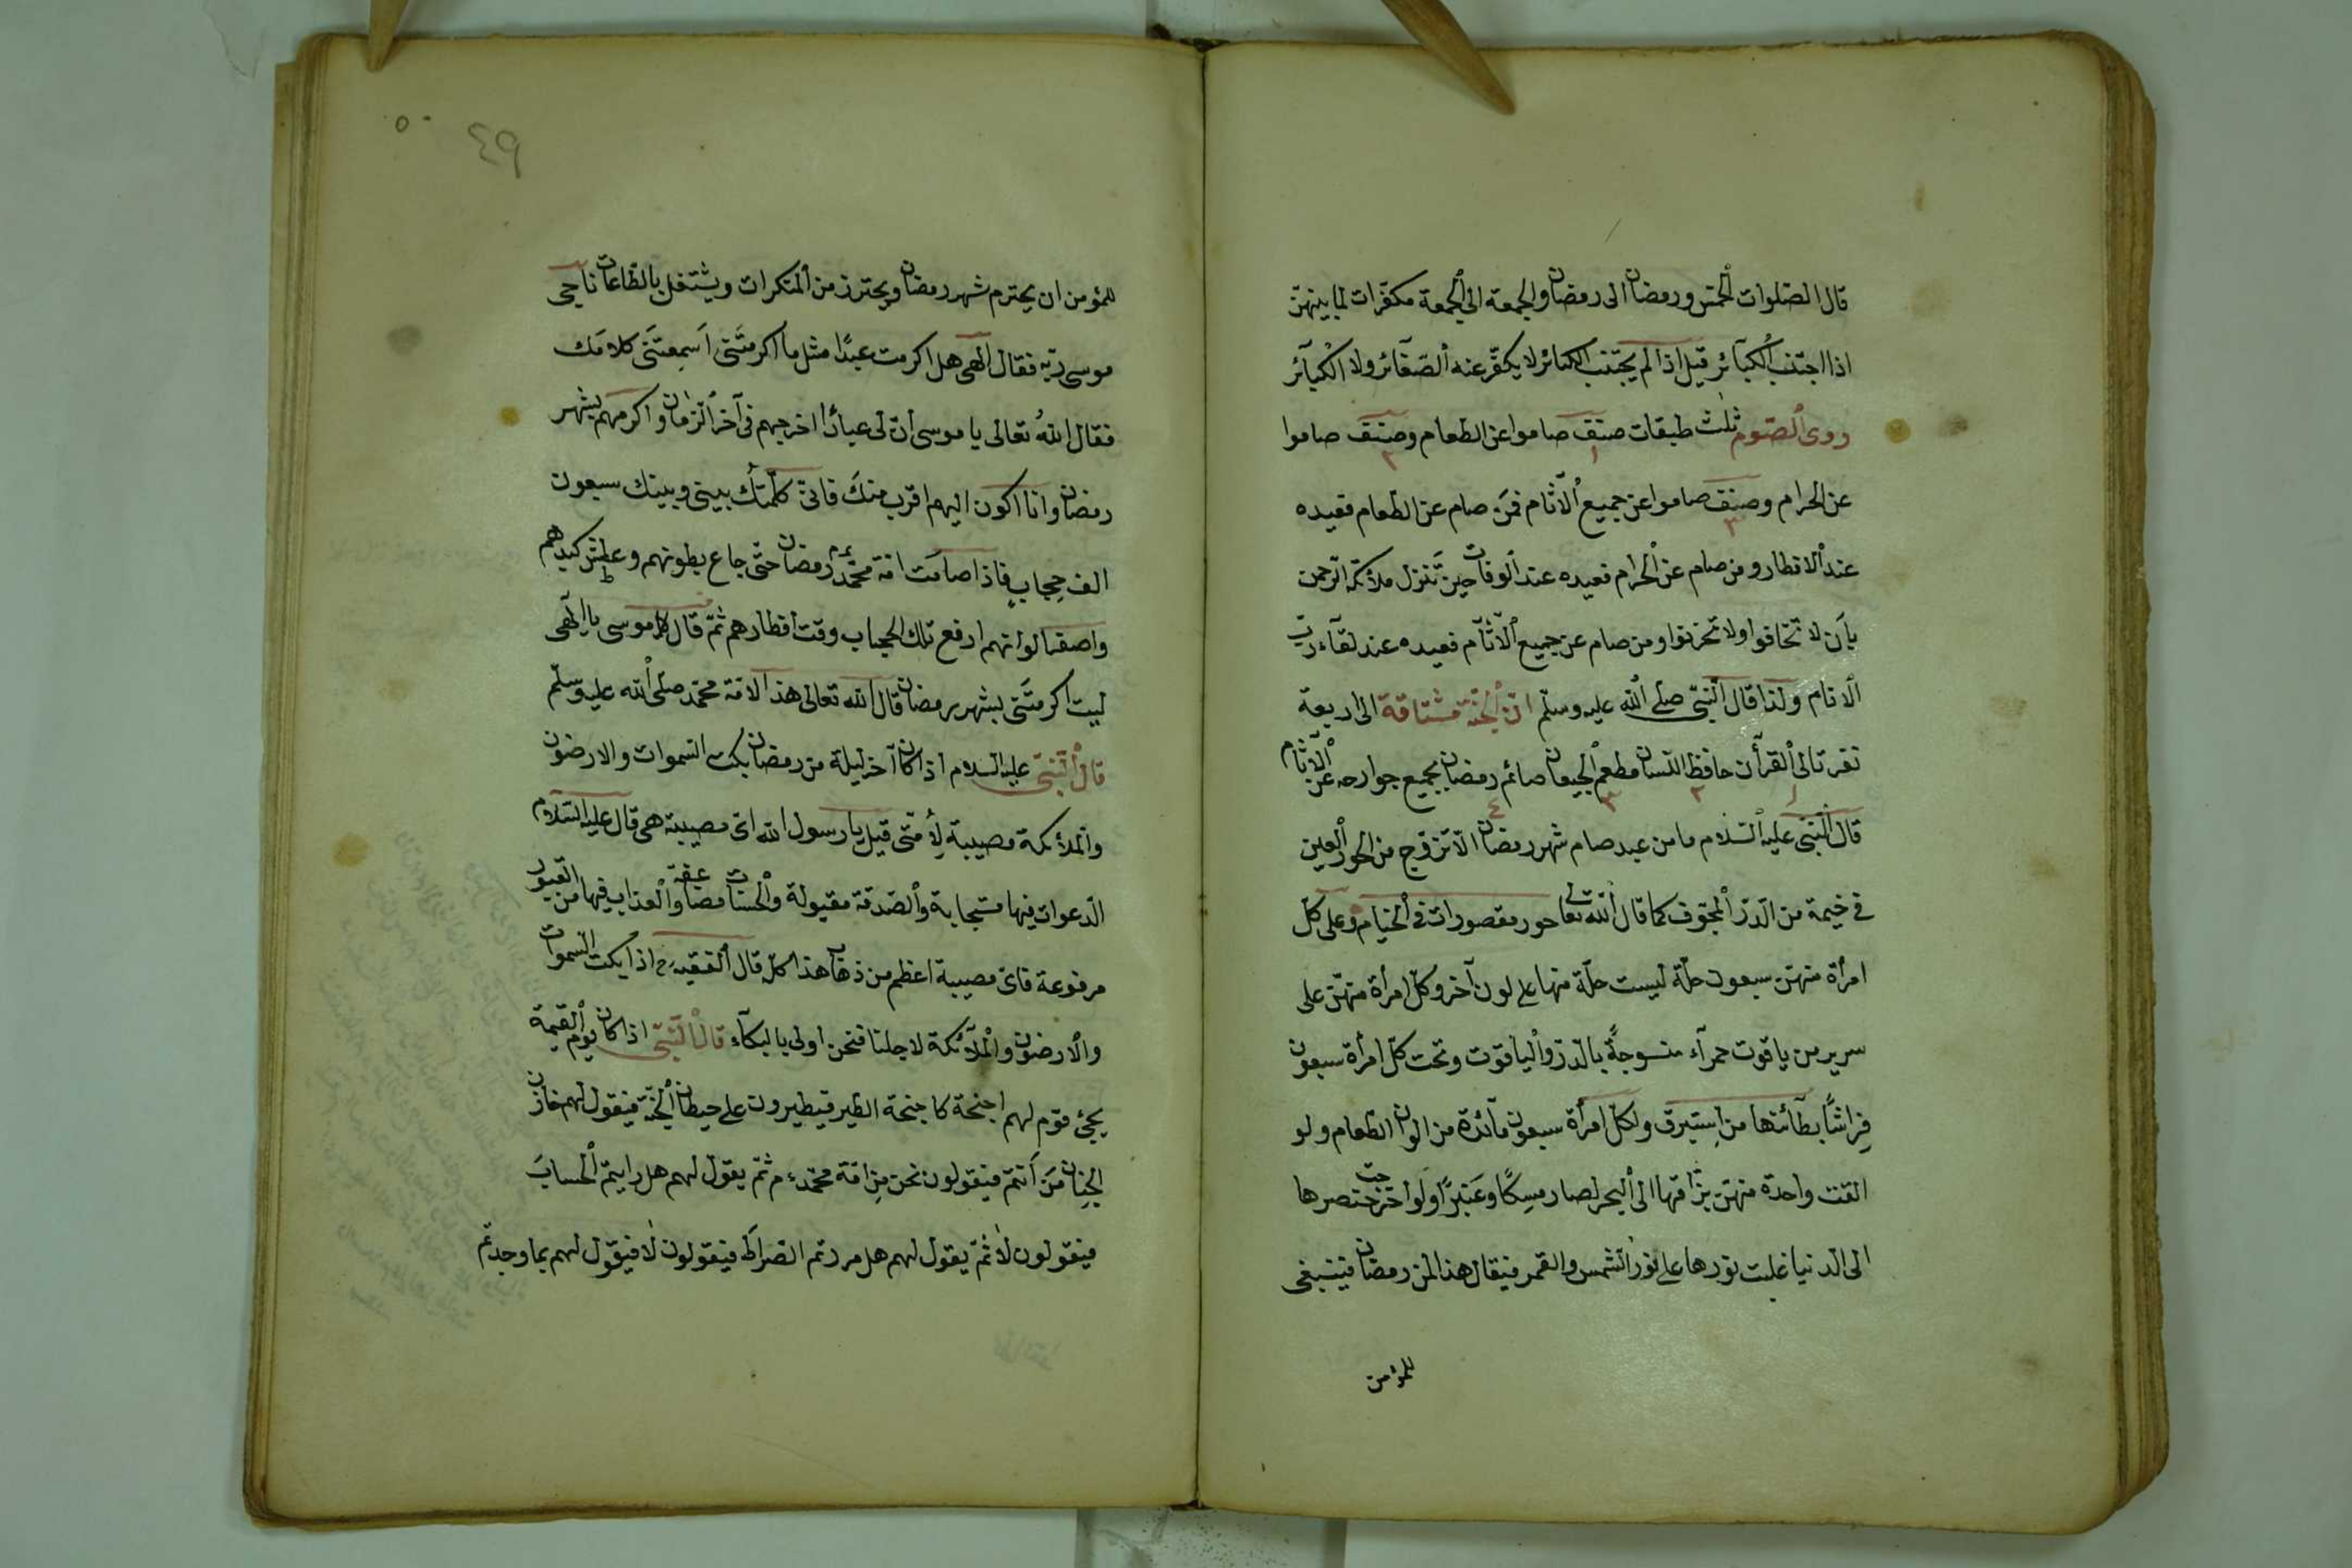 قال الصّلوات الخمس ورمضان الى رمضان والجمعة الى الجمعة مكفّرات لما بينهنّ
اذا اجتنب الكبآئر قيل اذا لم يجتنب الكبائر لا يكفّر عنه الصّغآئر ولا الكبآئر
روى الصّوم ثلث طبقات صنف صاموا عن الطعام وصنف صاموا
١ ٢
عن الحرام وصنف صاموا عن جميع الآثام فمن صام عن الطعام فعيده
٣
عند الافطار ومن صام عن الحرام فعيده عند الوفات حين تنزل ملائكة الرّحمن
بأن لا تخافوا ولا تحزنوا ومن صام عن جميع الآثآم فعيده عند لقآء ربّ
الانام ولذا قال النّبىّ صلى الله عليه وسلّم انّ الجنّة مشتاقة الى اربعة
نفر تالى القرأن حافظ اللّسان مطعم الجيعان صائم رمضان بجميع جوارحه عن الآثام
١ ٢ ٣ ٤
قال النّبىّ عليه السّلام ما من عبد صام شهر رمضان الّا تزوّج من الحور العين
فى خيمة من الدّرّ المجوّف كما قال الله تعالى حور مقصورات فى الخيام وعلى كلّ
امرأة منهنّ سبعون حلّة ليست حلّة منها على لون آخر وكلّ امرأة منهنّ على
سرير من ياقوت حمرآء منسوجةً بالدّرّ والياقوت وتحت كلّ امرأة سبعون
فِراشًا بطآئنها من اِستبرق ولكلّ امرأة سبعون مآئدة من الوان الطعام ولو
القت واحدة منهنّ بزاقها الى البحر لصار مِسكًا وعَنبرًا ولو اخرجت خنصرها
الى الدّنيا غلبت نورها على نور الشّمس والقمر فيقال هذا لمن رمضان فينبغى
للمؤمن
٥٠
٤٩
للمؤمن ان يحترم شهر رمضان ويحترز من المنكرات ويشتغل بالطّاعات ناجى
موسى ربّه فقال الهى هل اكرمت عبدًا مثل ما اكرمتَنى اَسمعتَنى كلامك
فقال اللهُ تعالى يا موسى انّ لى عبادًا اخرجهم فى آخر الزّمان واكرمهم بشهر
رمضان وانا اكون اليهم اقرب منكَ فانى كلّمتك بينى وبينك سبعون
الف حِجابٍ فاذا صامَت امّة محمّد رمضان حتّى جاع بطونهم وعطش كبدهم
واصفر الوانهم ارفع تلك الحجاب وقت افطارهم ثمّ قال موسى يا اِلٓهى
ليت اكرمتَنى بشهر رمضان قال الله تعالى هذا لامّة محمّد صلى الله عليه وسلّم
قال النّبىّ عليه السلام اذا كان آخر ليلة من رمضان بكت السّموات والارضون
والملائكة مصيبة لِأمّتى قيل يا رسول الله اىّ مصيبة هى قال عليه السّلام
الدّعوات فيها مستجابة والصّدقة مقبولة والحسنات مضاعفة والعذاب فيها من القبور
مرفوعة فاىّ مصيبة اعظم من ذهاب هذا كلّه قال الفقيه رح اذا بكت السّموات
والارضون والملآئكة لاجلنا فنحن اولى بالبكآء قال النّبىّ اذا كان يوم القيمة
يجئ قوم لهم اجنحة كاجنحة الطير فيطيرون على حيطان الجنّة فيقول لهم خازن
الجنان مَن أنتم فيقولون نحن مِن امّة محمّد ع م ثمّ يقول لهم هل رايتم الحسابَ
فيقولون لا ثمّ يقول لهم هل مررتم الصّراطَ فيقولون لا فيقول لهم بما وجدتم